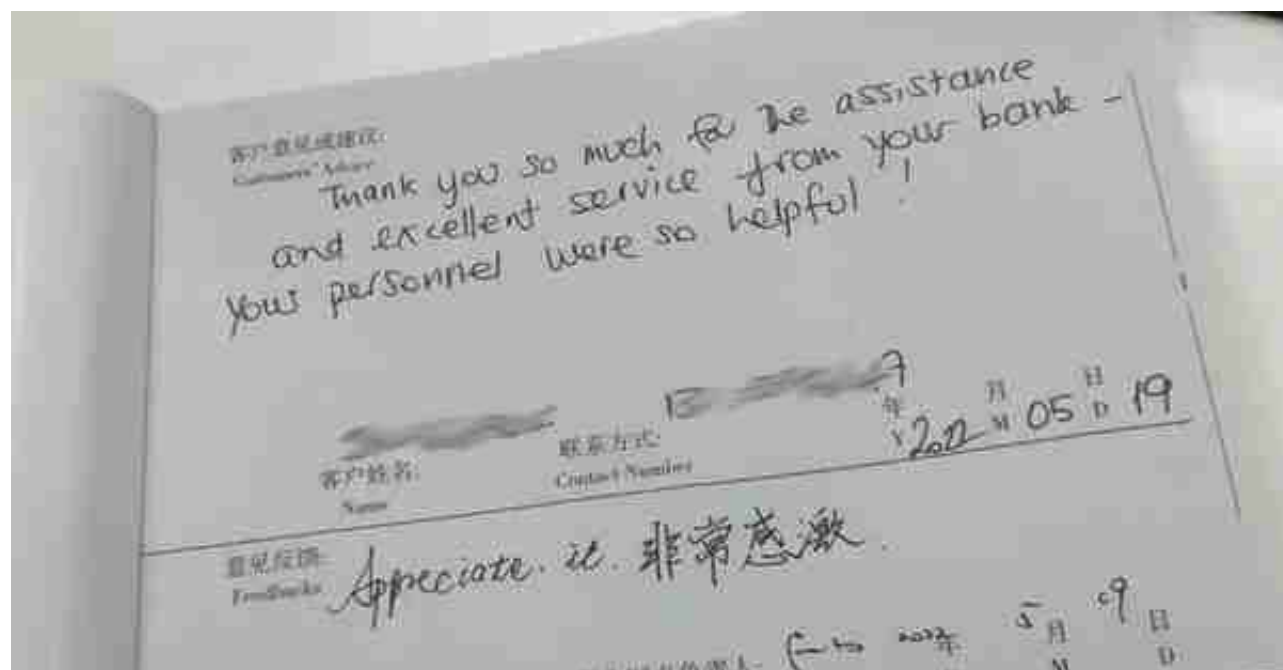 客户意见或建议:
Customers' Advice
Thank you so much for the assistance
and excellent service from your bank -
your personnel were so helpful!
13
9
客户姓名:
Name
联系方式:
Contact Number
年 月 日
Y 2022 M 05 D 19
意见反馈:
Feedbacks
Appreciate. it. 非常感激.
2022年 5月 19日
M D